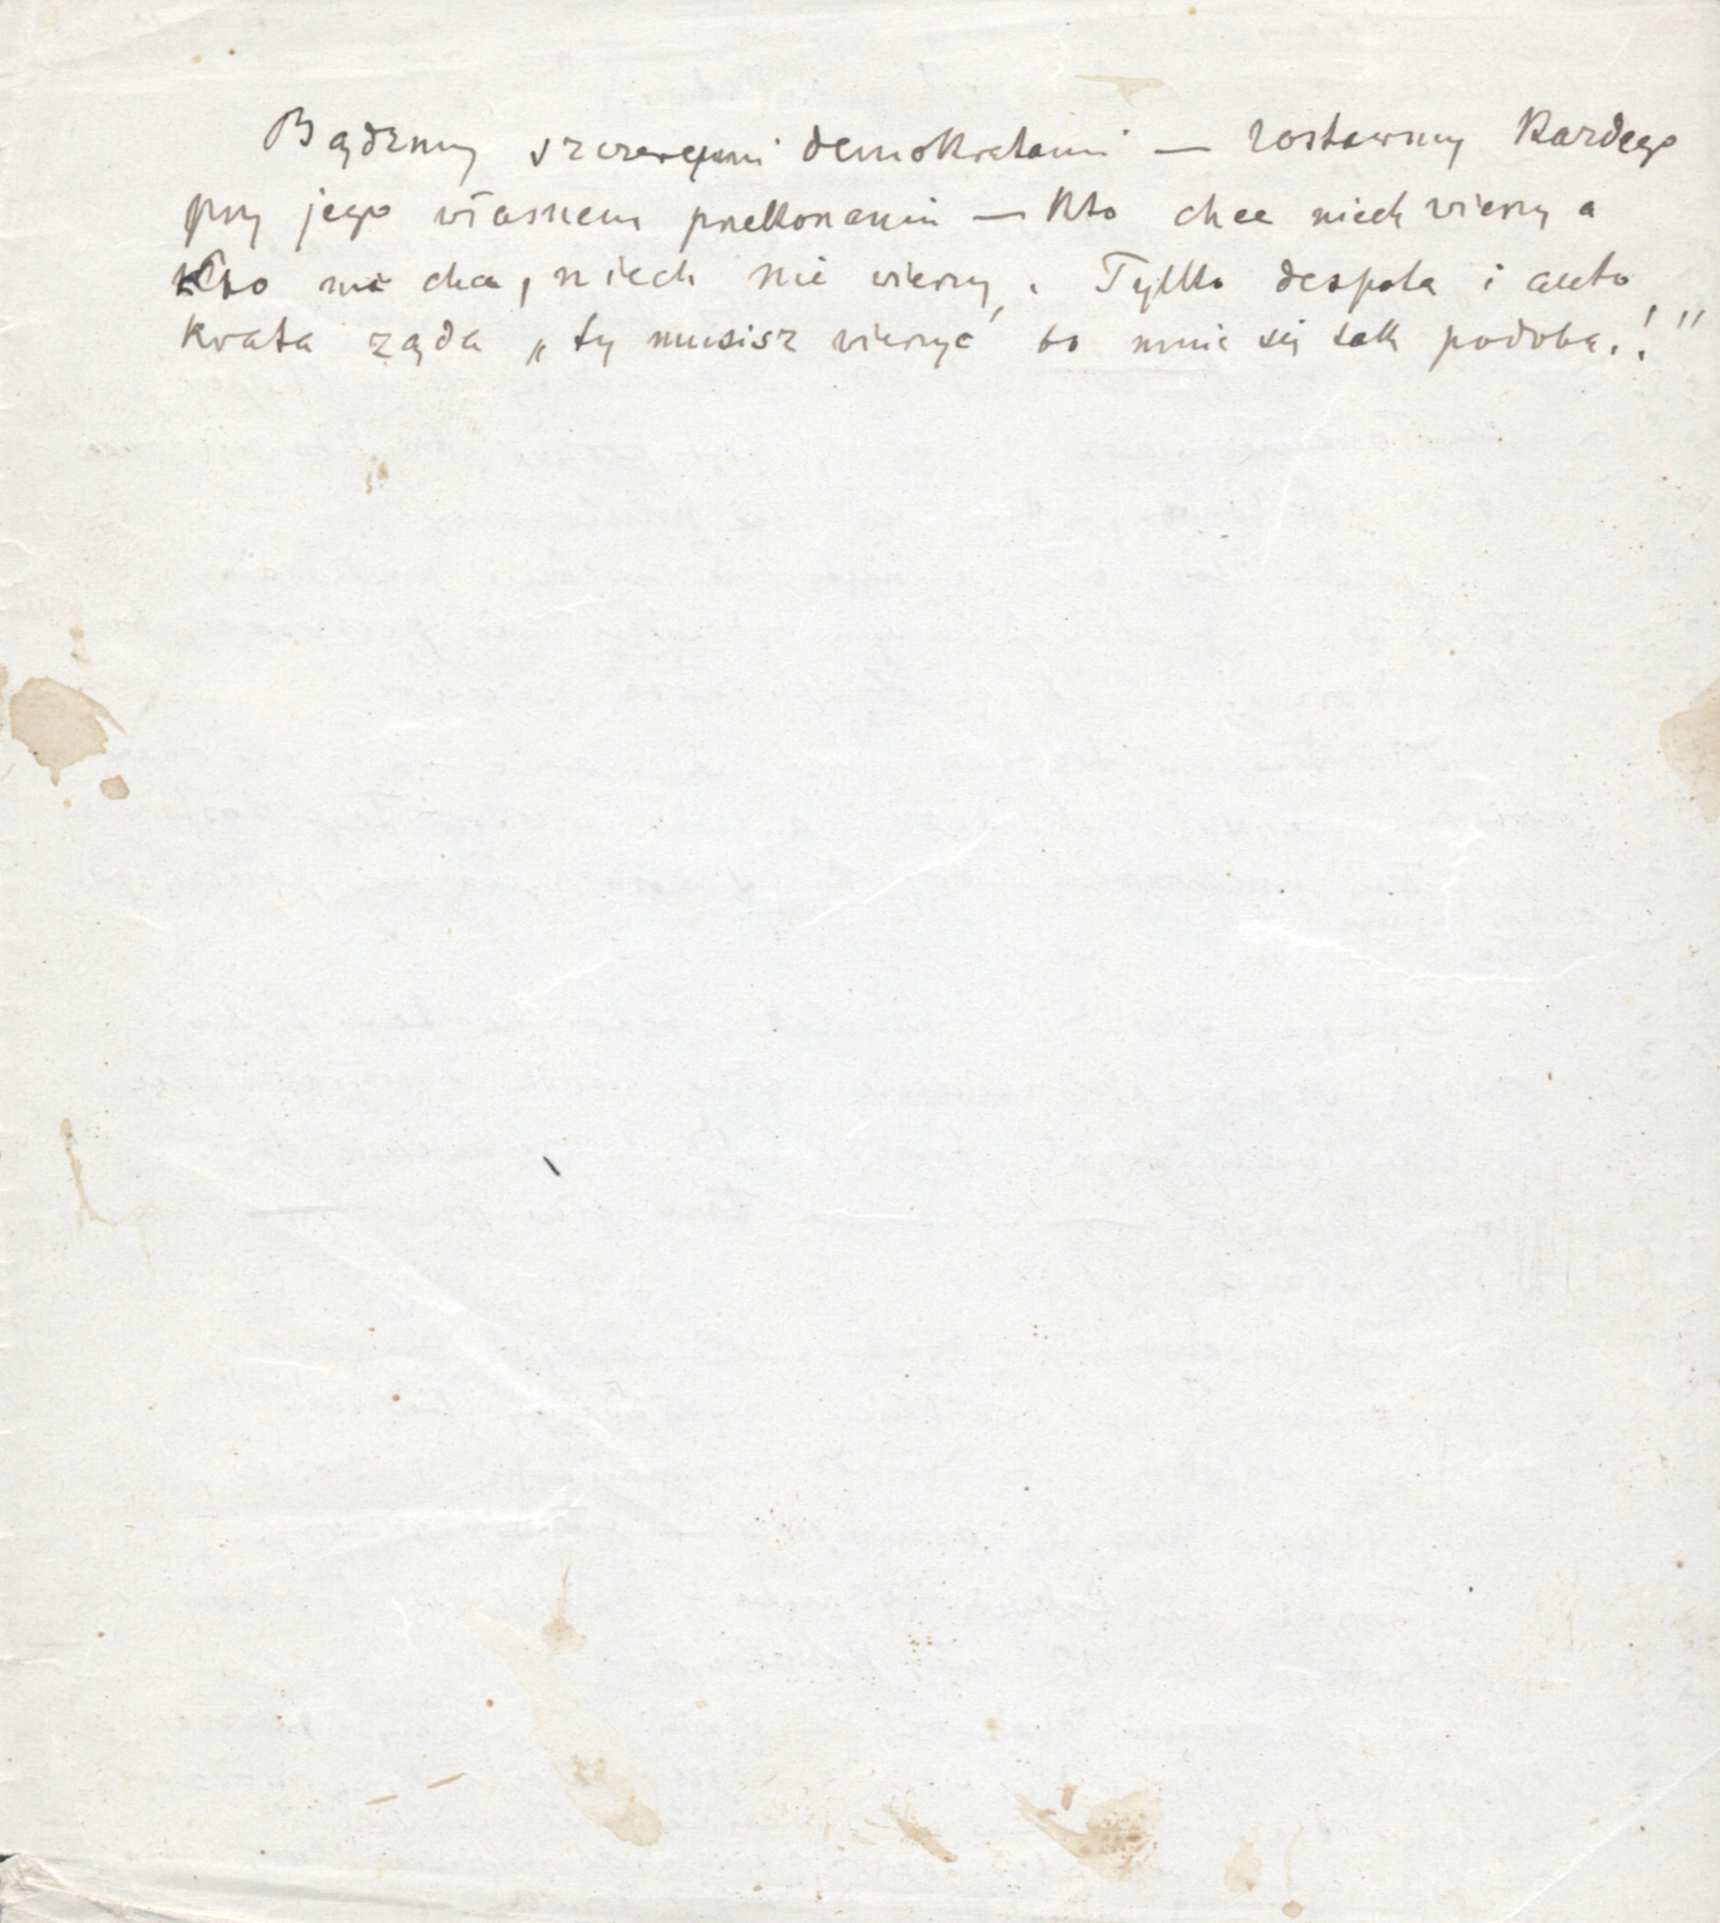 Bądźmy szczerymi demokratami — zostawmy każdego
przy jego własnem przekonaniu — kto chce niech wierzy a
kto nie chce, niech nie wierzy. Tylko despota i auto
krata żąda „ty musisz wierzyć bo mnie się tak podoba.!"